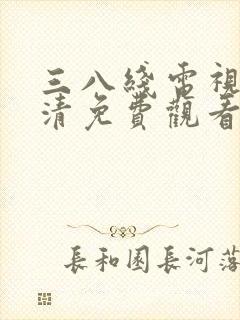 三八綫電視
清免費觀看
長和園長河落